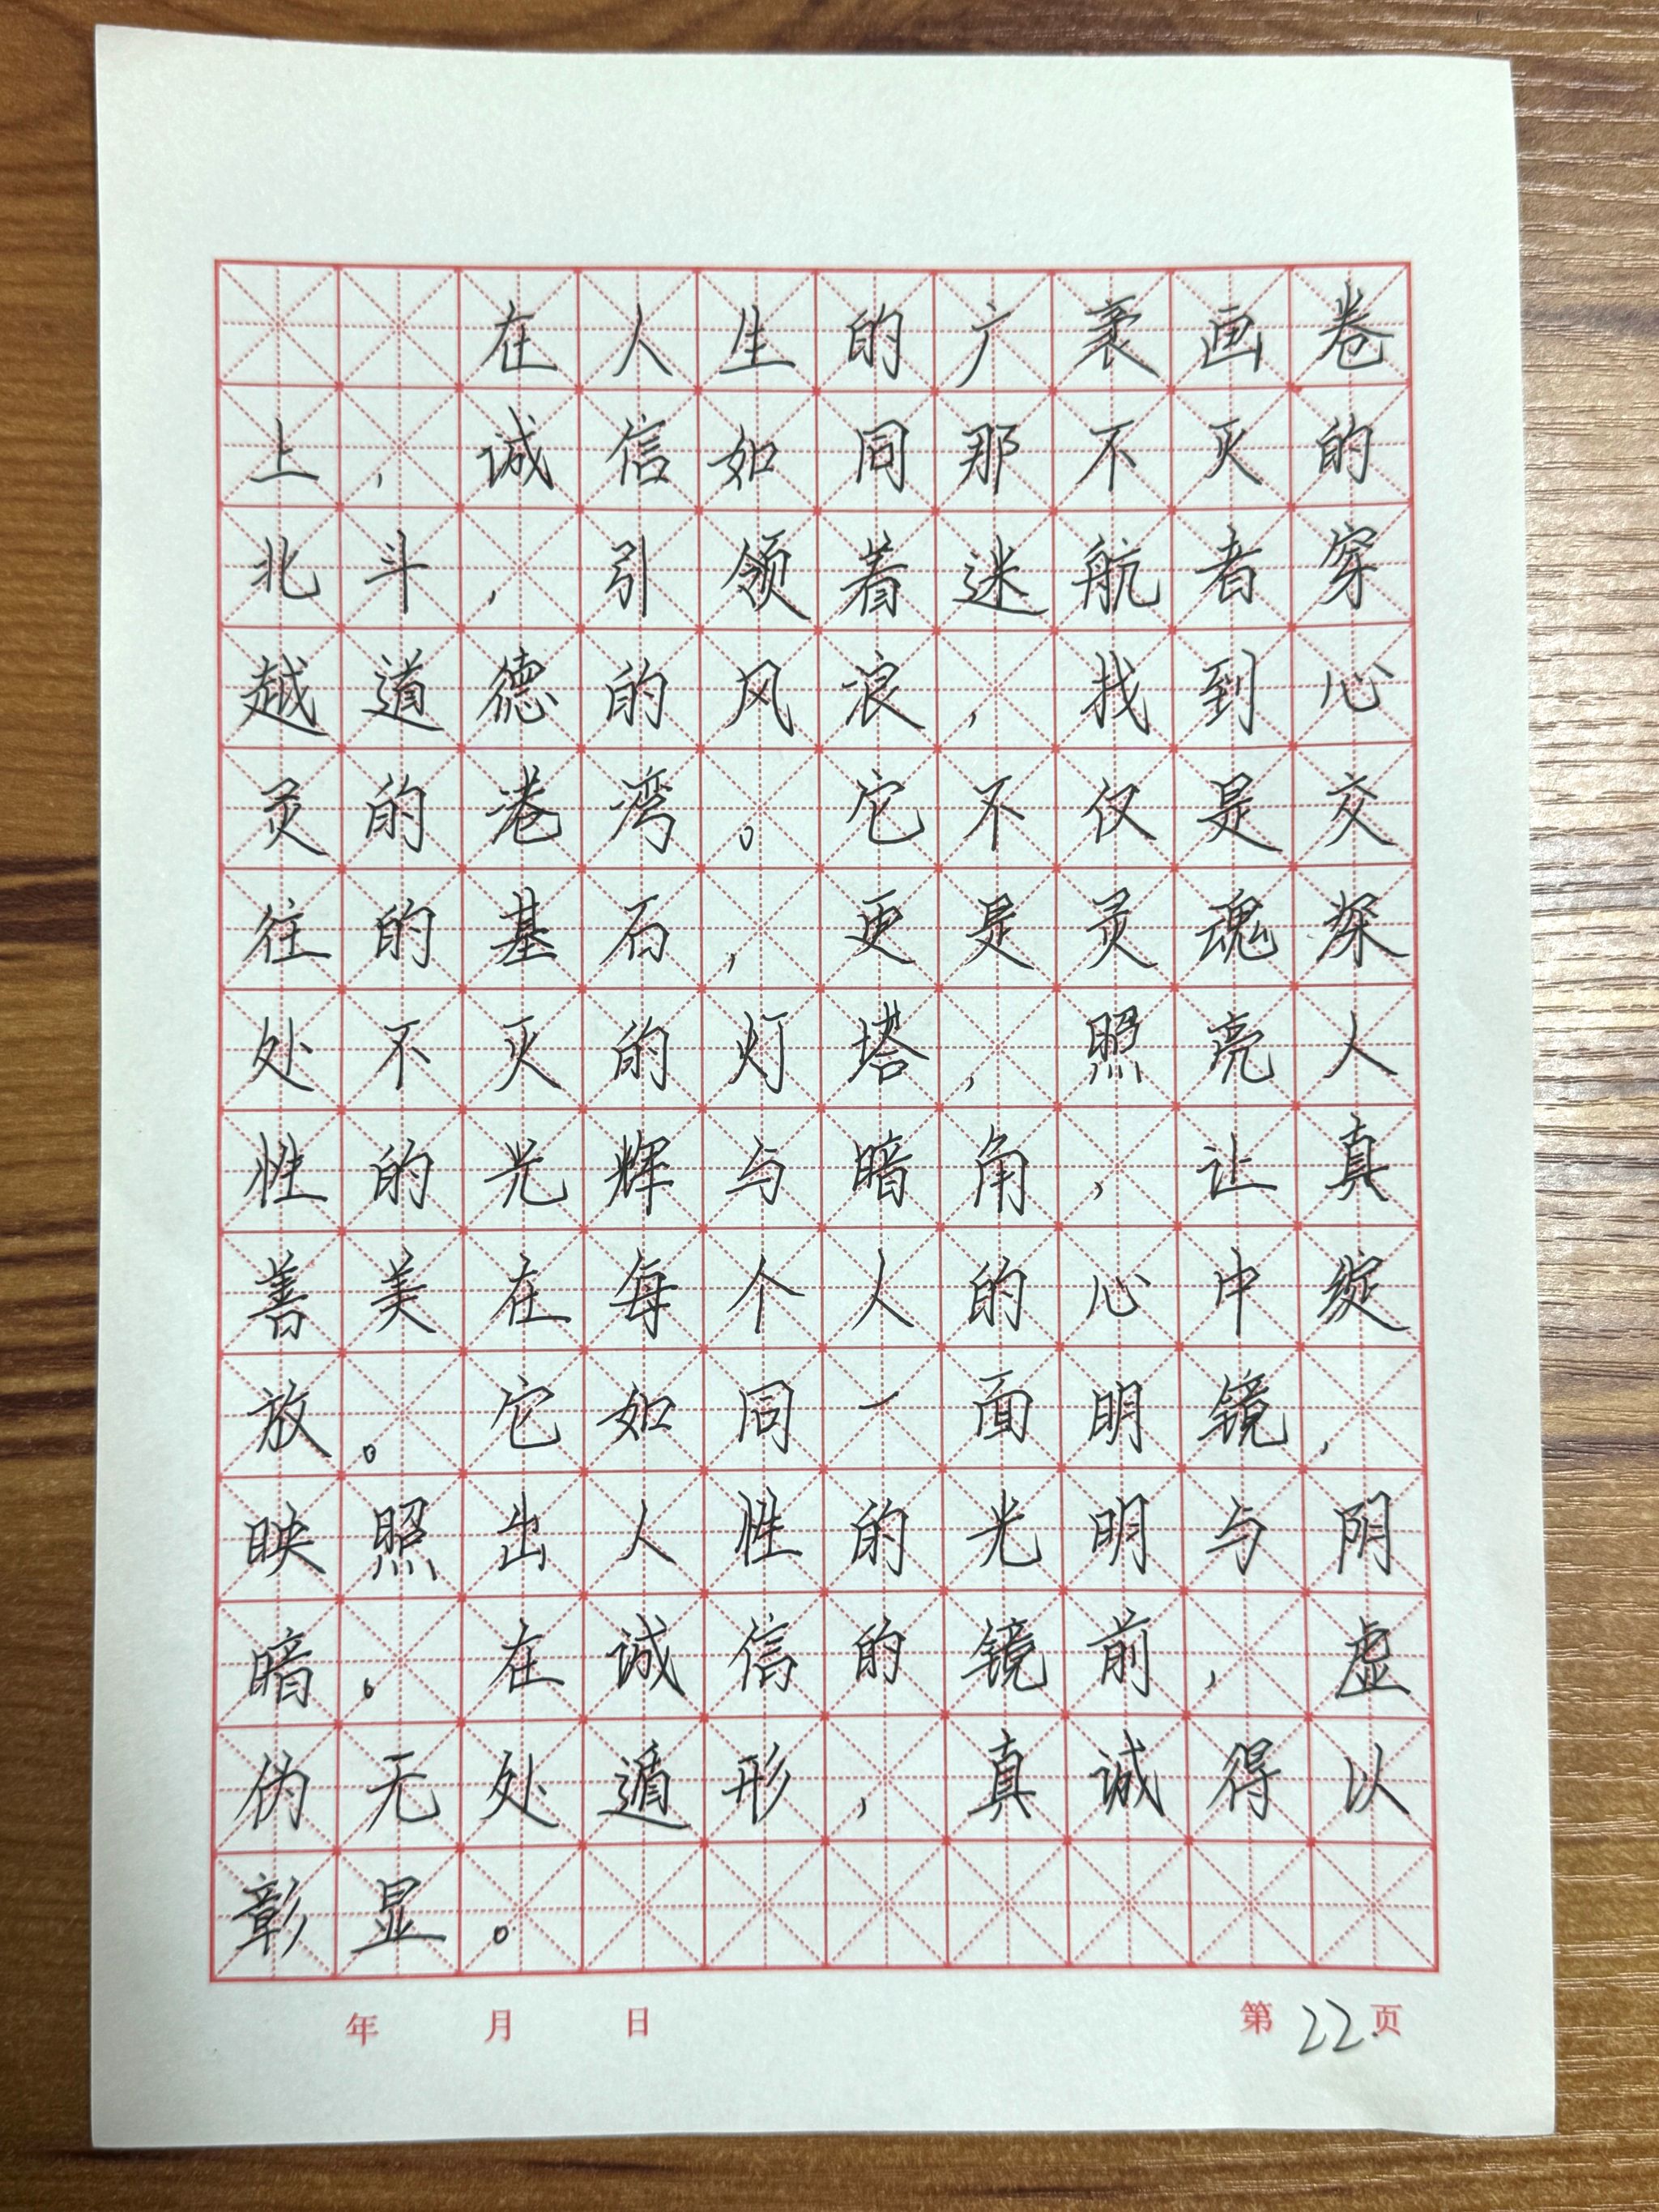 在人生的广袤画卷
上，诚信如同那不灭的
北斗，引领着迷航者穿
越道德的风浪，找到心
灵的港湾。它不仅是交
往的基石，更是灵魂深
处不灭的灯塔，照亮人
性的光辉与暗角，让真
善美在每个人的心中绽
放。它如同一面明镜，
映照出人性的光明与阴
暗。在诚信的镜前，虚
伪无处遁形，真诚得以
彰显。
年 月 日 第22页